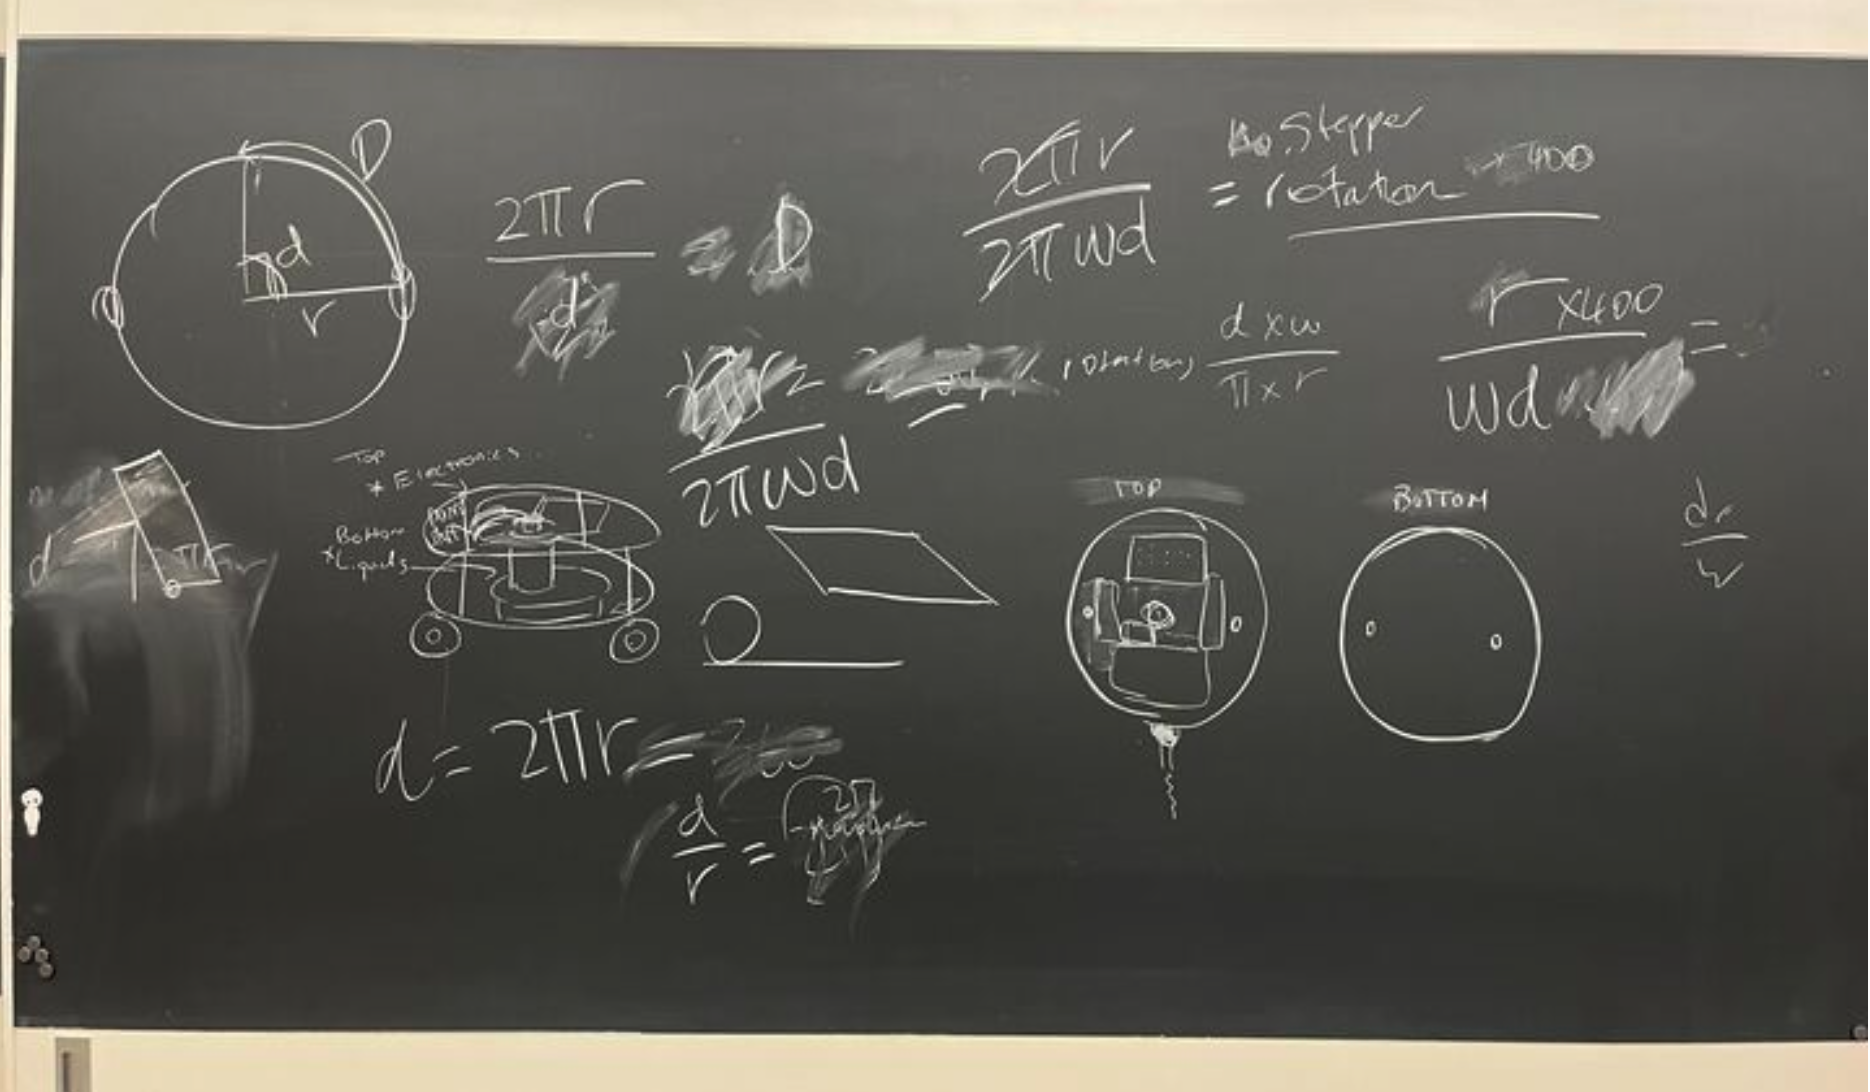 D
d
r
2πr
= D
2πr
2πwd
No. Stepper
= rotation × 400
r × 400
wd
=
rotations
d × w
π × r
2πwd
Top
* Electronics
Bottom
* Liquids
TOP
BOTTOM
dr
w
d
πr
d = 2πr =
d
r
=
2π